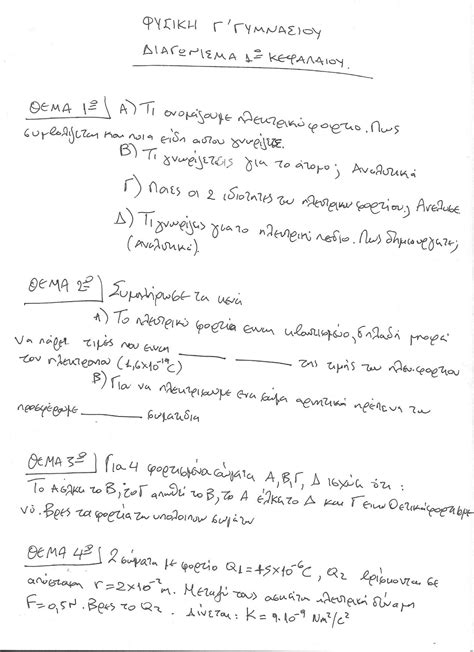 ΦΥΣΙΚΗ Γ' ΓΥΜΝΑΣΙΟΥ
ΔΙΑΓΩΝΙΣΜΑ 1ο ΚΕΦΑΛΑΙΟΥ.
ΘΕΜΑ 1ο Α) Τι ονομάζουμε ηλεκτρικό φορτίο. Πως
συμβολίζεται και ποια είδη αυτου γνωρίζετε.
Β) Τι γνωρίζετε για το άτομο; Αναλυτικά
Γ) Ποιες οι 2 ιδιότητες του ηλεκτρικου φορτίου; Ανέλυσε
Δ) Τι γνωρίζεις για το ηλεκτρικό πεδίο. Πως δημιουργειται;
(Αναλυτικά).
ΘΕΜΑ 2ο Συμπλήρωσε τα κενά
Α) Το ηλεκτρικό φορτίο ειναι κβαντισμένο, δηλαδή μπορεί
να πάρει τιμές που ειναι ______ ______ της τιμής του ηλεκ. φορτιου
του ηλεκτρονιου (1,6x10⁻¹⁹C)
Β) Για να ηλεκτρισουμε ενα σώμα αρνητικά πρέπει να του
προσφέρουμε ______ σωματιδια
ΘΕΜΑ 3ο Για 4 φορτισμένα σώματα Α, Β, Γ, Δ ισχύει ότι:
Το Α έλκει το Β, το Γ απωθεί το Β, το Α έλκει το Δ και Γ ειναι Θετικά φορτισμε
νο. Βρες τα φορτία των υπολοιπων σωμάτων
ΘΕΜΑ 4ο 2 σώματα με φορτίο Q1 = 45x10⁻⁶C, Q2 βρίσκονται σε
απόσταση r = 2x10⁻²m. Μεταξύ τους ασκείται ηλεκτρική δύναμη
F = 0,5N. Βρες το Q2. Δίνεται: K = 9.10⁻⁹ Nm²/c²